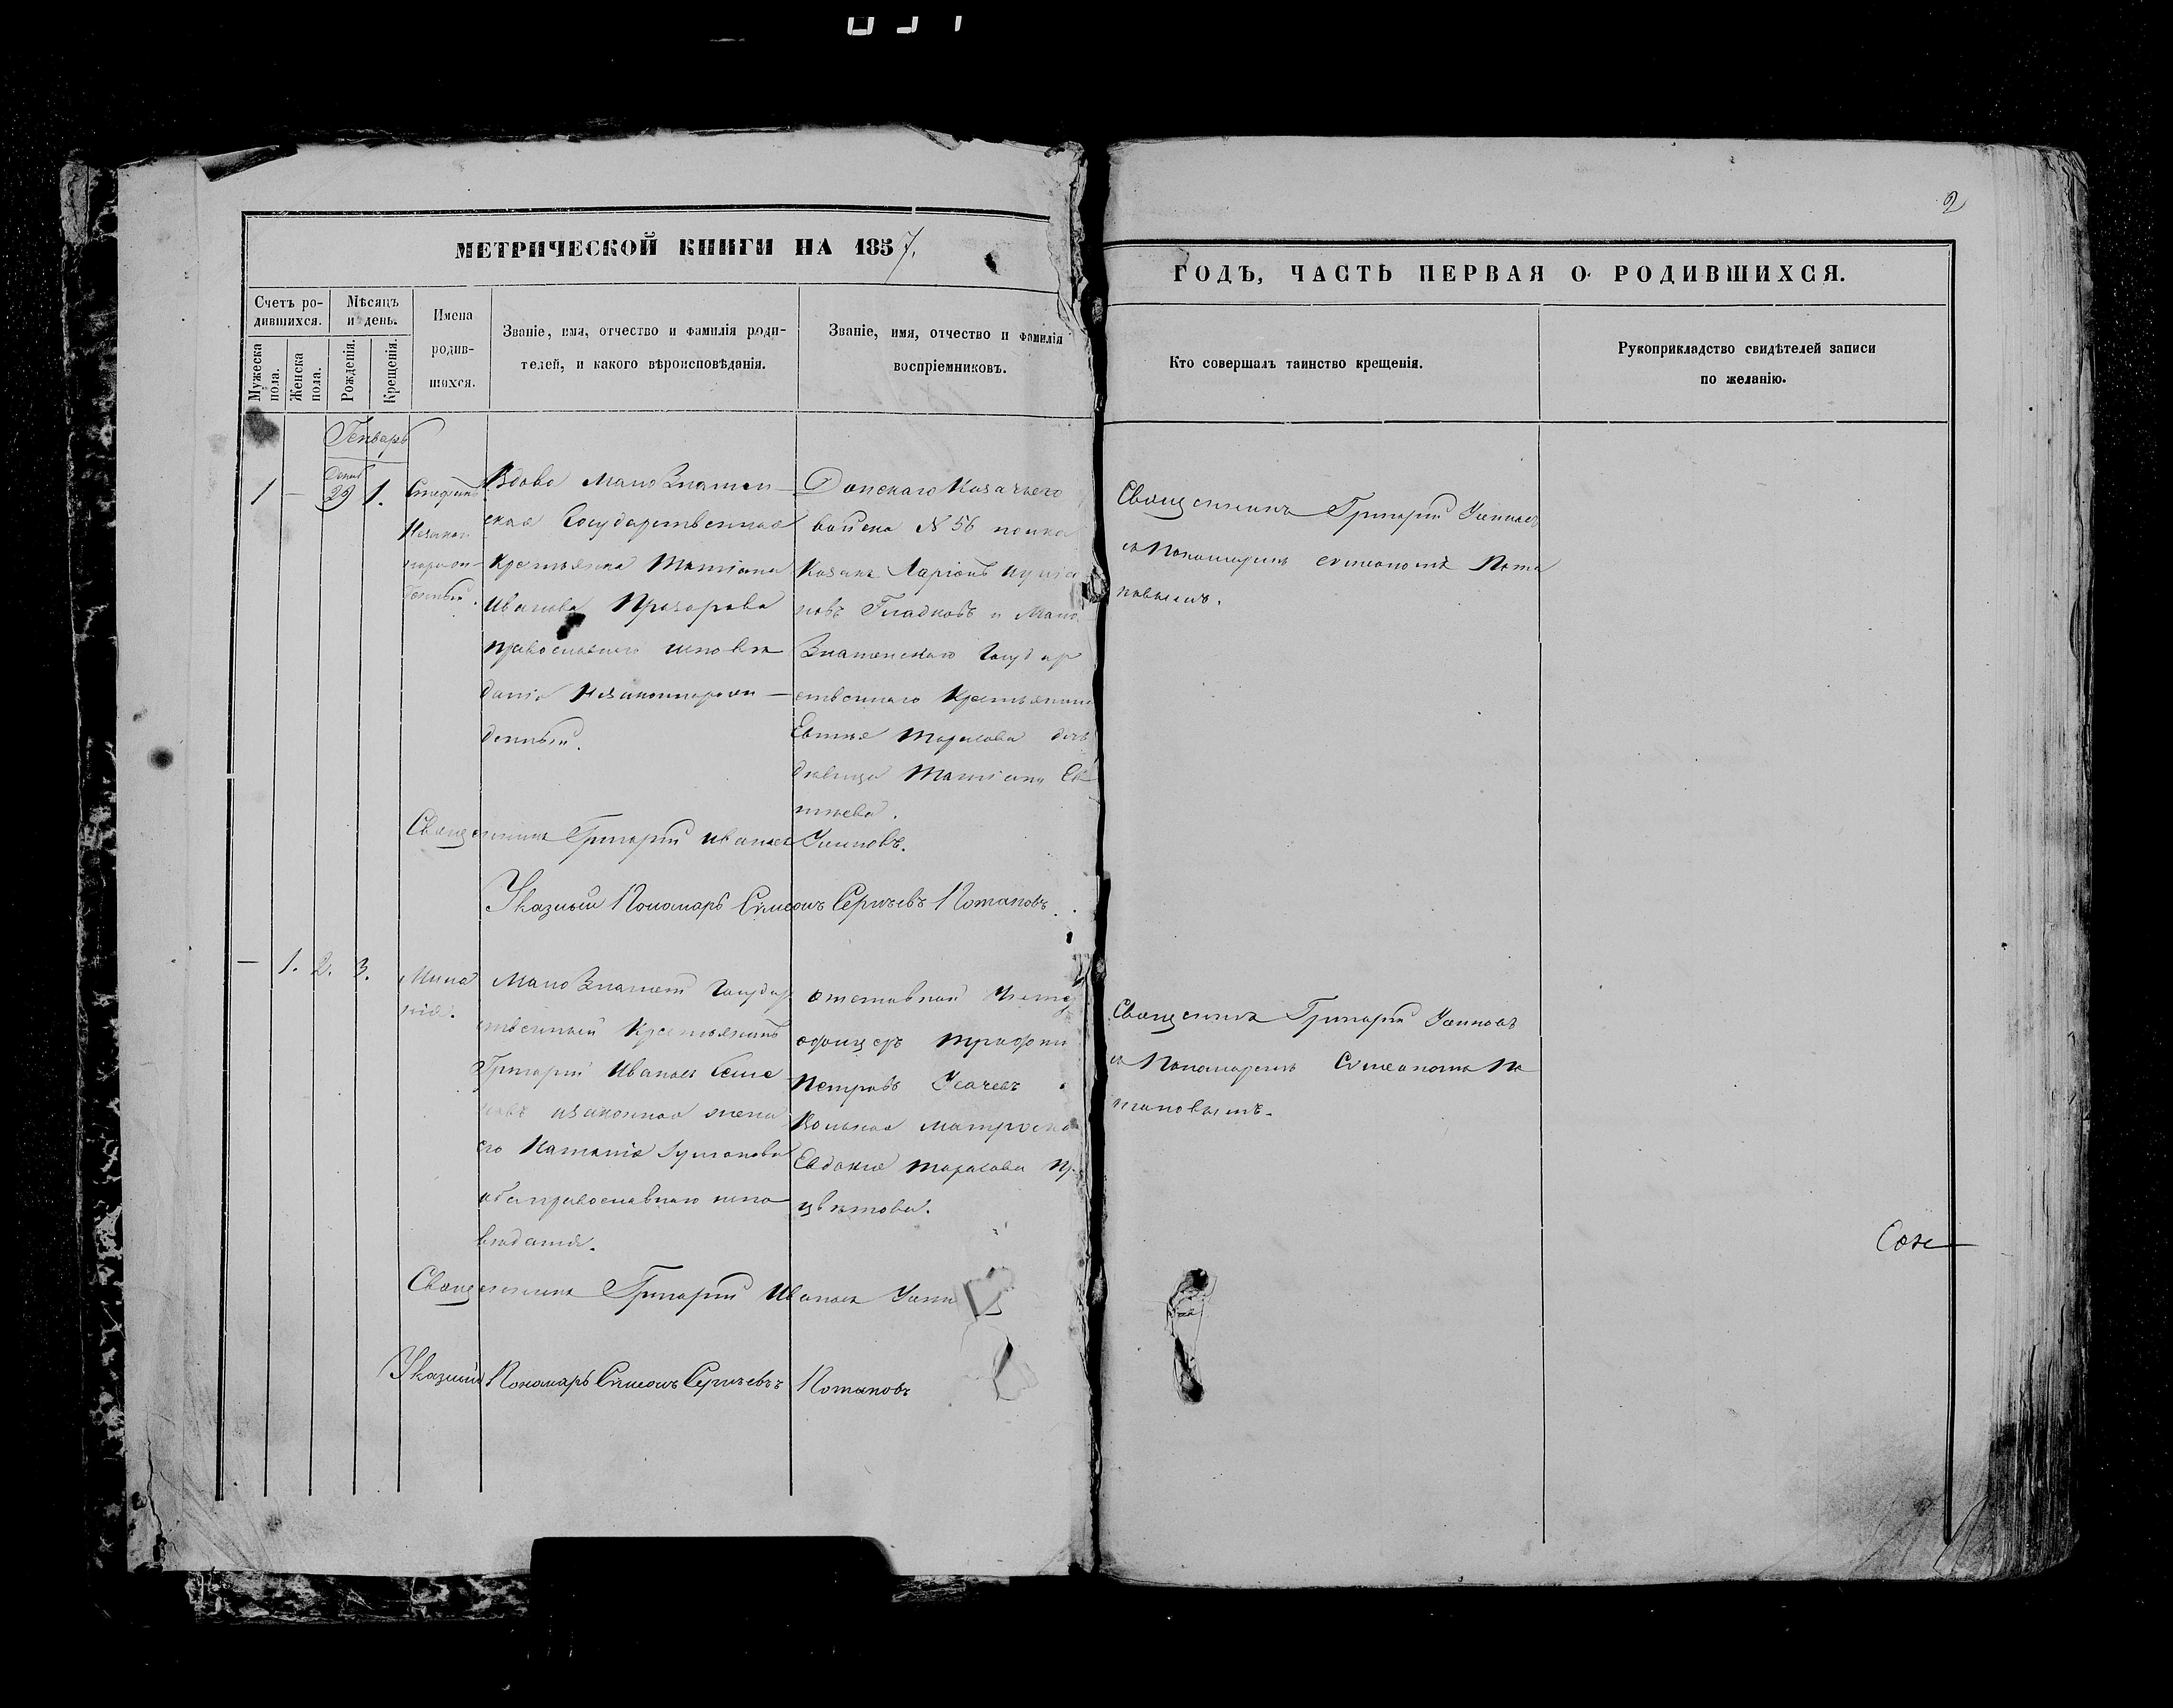 2
МЕТРИЧЕСКОЙ КНИГИ НА 1857.
ГОДЪ, ЧАСТЬ ПЕРВАЯ О РОДИВШИХСЯ.
Счетъ ро-
дившихся.
Мужеска
пола.
Женска
пола.
Мѣсяцъ
и день.
Рожденія.
Крещенія.
Имена
родив-
шихся.
Званіе, имя, отчество и фамилія роди-
телей, и какого вѣроисповѣданія.
Званіе, имя, отчество и фамилія
воспріемниковъ.
Кто совершалъ таинство крещенія.
Рукоприкладство свидѣтелей записи
по желанію.
Генварь
1 — 29 1.
Стефанъ
Незакон
норож-
денный.
Вдова Мало Знамен-
ская Государственная
Крестьянка Татіана
Иванова Прохорова
православнаго исповѣ
данія Незаконнорож-
денный.
Донскаго Козачьего
войска N 56 полка
Козакъ Ларіонъ
Гладковъ и Мало
Знаменскаго Государ
ственнаго Крестьянина
Тарасова дочь
дѣвица Татіана Ев
Священникъ Григорій
съ Пономаремъ Симеономъ Пота
повымъ.
Священникъ Григорій Иванов
Указный Пономарь Симеонъ Сергѣевъ Потаповъ.
— 1. 2. 3.
Мало Знамен Государ
ственный Крестьянинъ
Григорій Иванов
законная жена
его
оба православнаго испо
вѣданія.
отставной Унтеръ
офицеръ
Петровъ Усачевъ
Вольная матроска
Евдокия Тарасова
цвѣтова.
Священникъ Григорій
съ Пономаремъ Симеономъ По
таповымъ.
Священникъ Григорій Иванов
Указный Пономарь Симеонъ Сергѣевъ Потаповъ